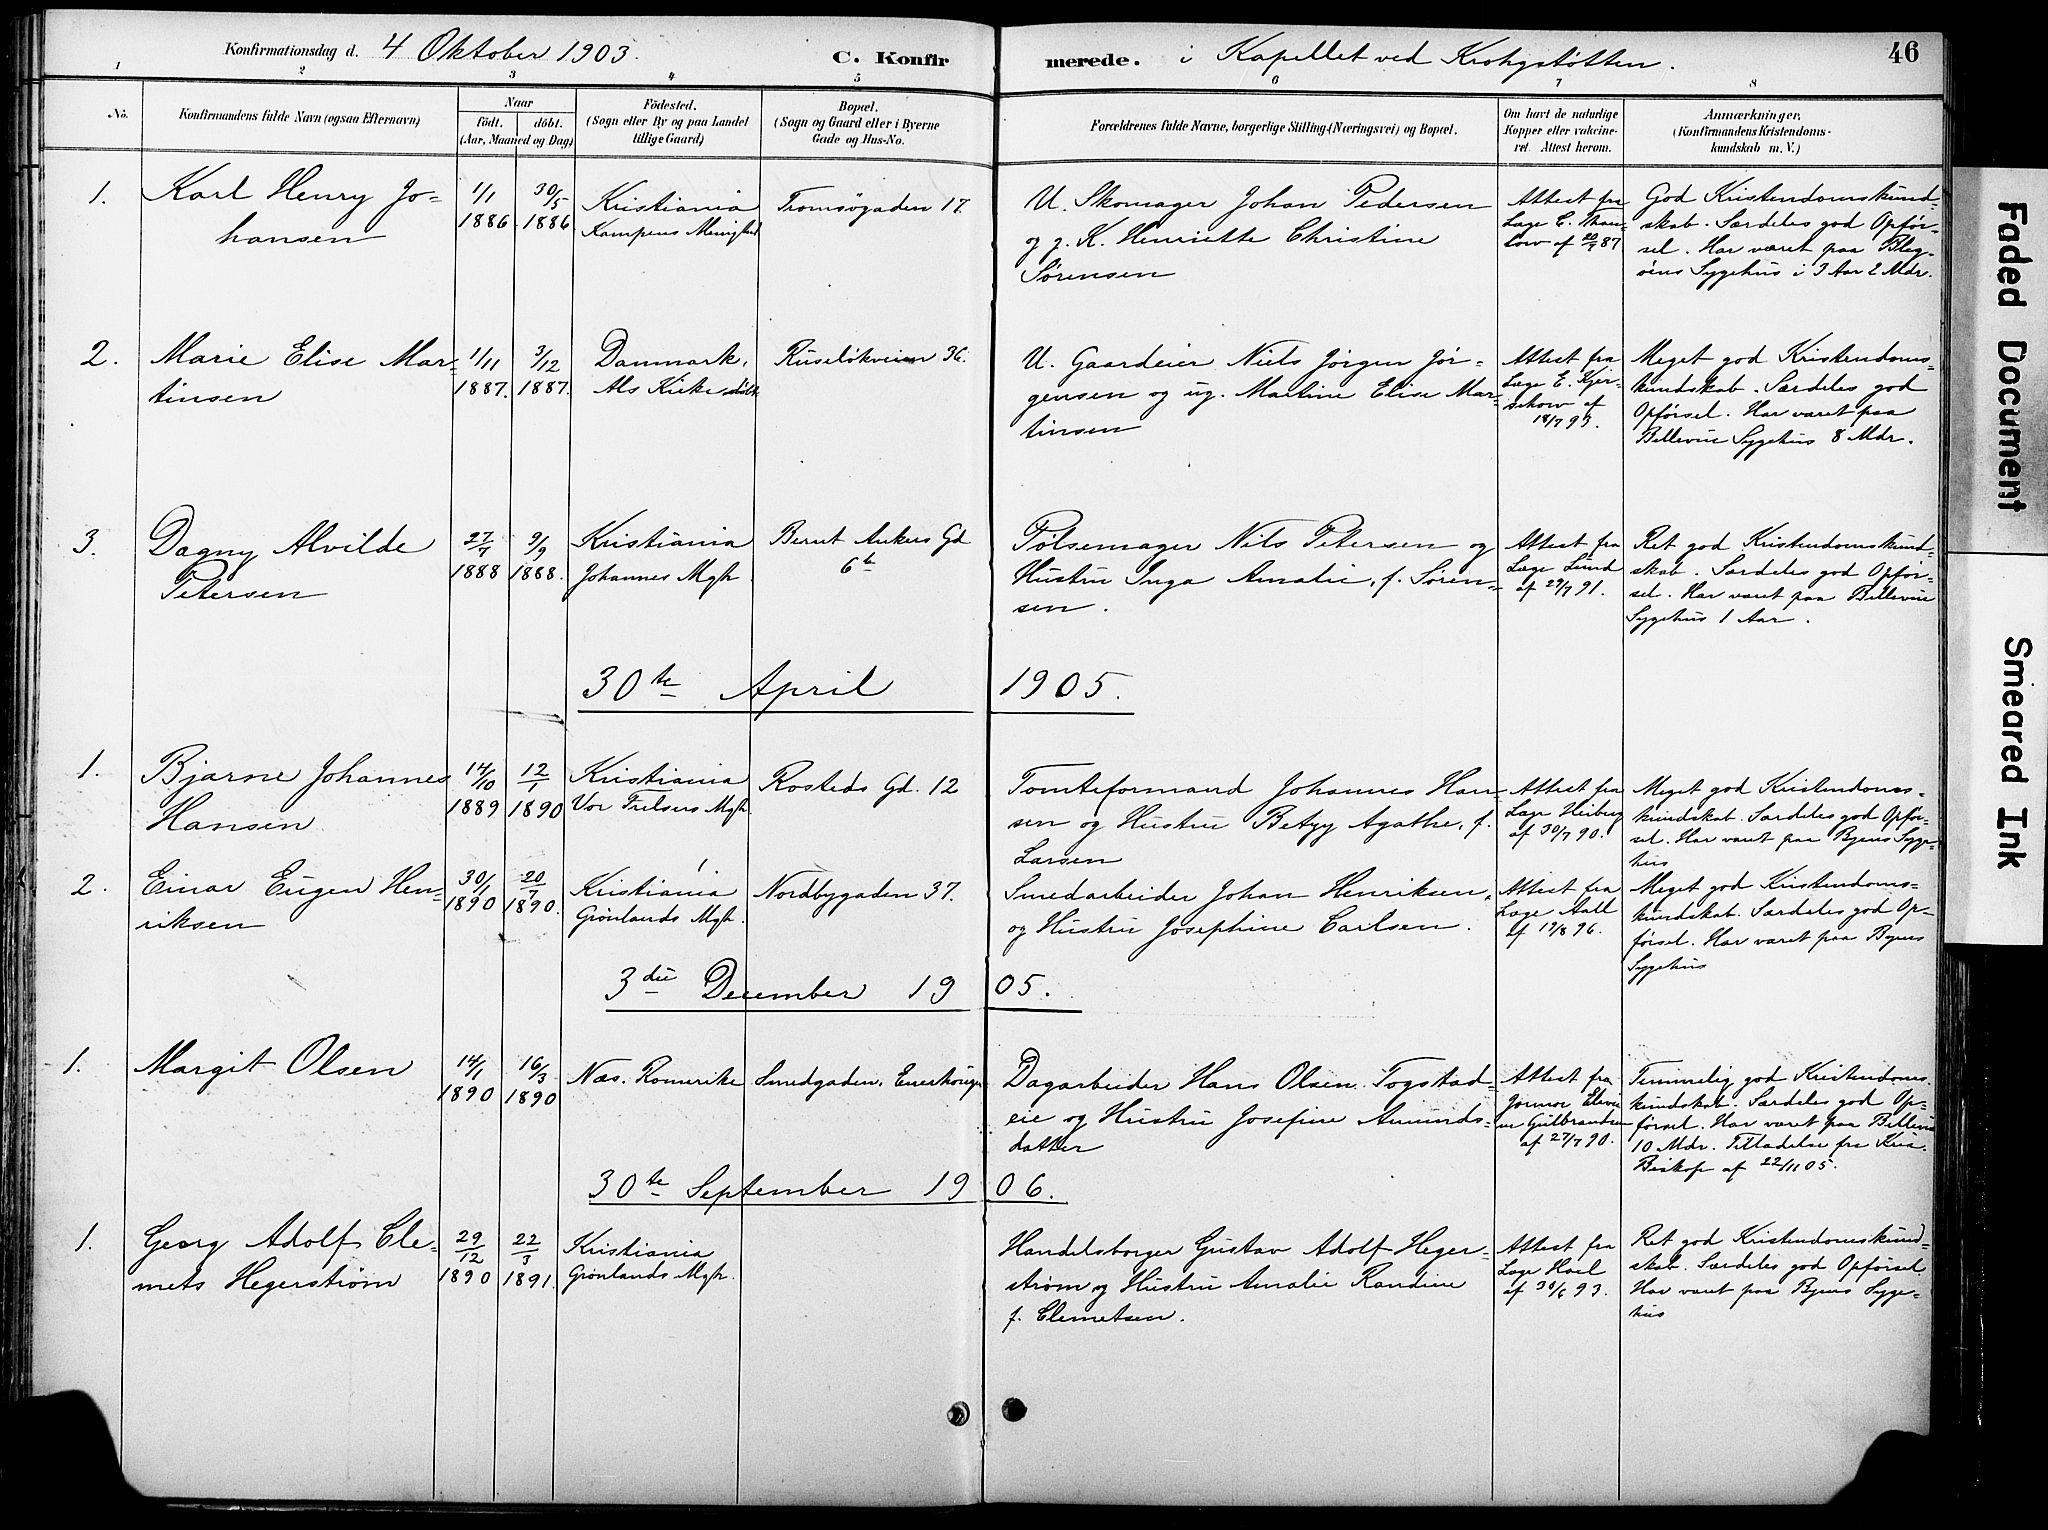 Konfirmationsdag d. 4 Oktober 1903. C. Konfirmerede. i Kapellet ved Krohgstøtten. 46
1 2 3 4 5 6 7 8
No.
Konfirmandens fulde Navn (ogsaa Efternavn)
Naar
födt. döbt.
(Aar, Maaned og Dag)
Födested.
(Sogn eller By og paa Landet
tillige Gaard)
Bopæl.
(Sogn og Gaard eller i Byerne
Gade og Hus-No.
Forældrenes fulde Navne, borgerlige Stilling (Næringsvei) og Bopæl.
Om havt de naturlige
Kopper eller vakcine-
ret. Attest herom.
Anmærkninger.
(Konfirmandens Kristendoms-
kundskab m. V.)
1.
Karl Henry Jo-
hansen
1/1
1886.
30/5
1886
Kristiania
Kampens Menighed
Tromsøgaden 17.
U. Skomager Johan Pedersen
og g. K. Henriette Christine
Sørensen
Attest fra
Læge E. Thau-
low af 20/7 87
God Kristendomskund-
skab. Særdeles god Opför-
sel. Har været paa Bleg-
öens Sygehus i 3 Aar 2 Mdr.
2.
Marie Elise Mar-
tinsen
1/11
1887.
3/12
1887.
Danmark,
Als Kirke döbt
Ruseløkveien 36.
U. Gaardeier Niels Jørgen Jør-
gensen og ug. Martine Elise Mar-
tinsen
Attest fra
Læge E. Kjer-
schow af
18/7 93.
Meget god Kristendoms-
kundskab. Særdeles god
Opførsel. Har været paa
Bellevue Sygehus 8 Mdr.
3.
Dagny Alvilde
Petersen
27/7
1888
9/9
1888.
Kristiania
Johannes Mgh.
Bernt Ankers Gd
6 b
Pølsemager Nils Petersen og
Hustru Inga Amalie, f. Søren-
sen.
Attest fra
Læge Lund
af 29/7 91.
Ret god Kristendomskund-
skab. Særdeles god Opför-
sel. Har været paa Bellevue
Sygehus 1 Aar.
30te April 1905.
1.
Bjarne Johannes
Hansen
14/10
1889
12/1
1890
Kristiania
Vor Frelsers Mgh.
Rosteds Gd. 12
Tomteformand Johannes Han-
sen og Hustru Betzy Agathe, f.
Larsen
Attest fra
Læge Heiberg
af 30/7 90.
Meget god Kristendoms-
kundskab. Særdeles god Opför-
sel. Har været paa Byens Syge-
hus
2.
Einar Eugen Hen-
riksen
30/1
1890
20/7
1890.
Kristiania
Grønlands Mgh.
Nordbygaden 37.
Smedarbeider Johan Henriksen
og Hustru Josephine Carlsen.
Attest fra
Læge Aall
af 19/8 96.
Meget god Kristendoms-
kundskab. Særdeles god Op-
førsel. Har været paa Byens
Sygehus
3die December 1905.
1.
Margit Olsen
14/1
1890
16/3
1890
Næs. Romerike
Smedgaden, Enerhougen
Dagarbeider Hans Olsen Togstad-
eie og Hustru Josefine Amunds-
datter
Attest fra
Jormor
Gulbrandsen
af 27/7 90.
Temmelig god Kristendoms
kundskab. Særdeles god Op-
førsel. Har været paa Bellevue
10 Mdr. Tilladelse fra Kria.
Biskop af 22/11 05.
30te September 1906.
1.
Georg Adolf Cle-
mets Hegerstrøm
29/12
1890
22/3
1891.
Kristiania
Grønlands Mgh.
Handelsborger Gustav Adolf Heger-
strøm og Hustru Amalie Randine
f. Clemetsen.
Attest fra
Læge Hoel
af 30/6 93.
Ret god Kristendomskund-
skab. Særdeles god Opførsel.
Har været paa Byens Syge-
hus
Faded Document
Smeared Ink